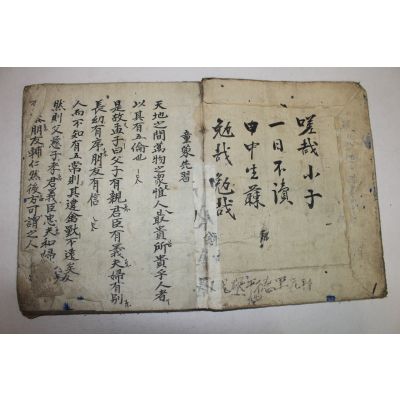 嗟哉小子
一日不讀
口中生蕀
勉哉勉哉
童蒙先習
天地之間萬物之衆惟人最貴所貴乎人者
以其有五倫也
是故孟子曰父子有親君臣有義夫婦有別
長幼有序朋友有信
人而不知有五常則其違禽獸不遠矣
然則父慈子孝君義臣忠夫和婦
朋友輔仁然後方可謂之人